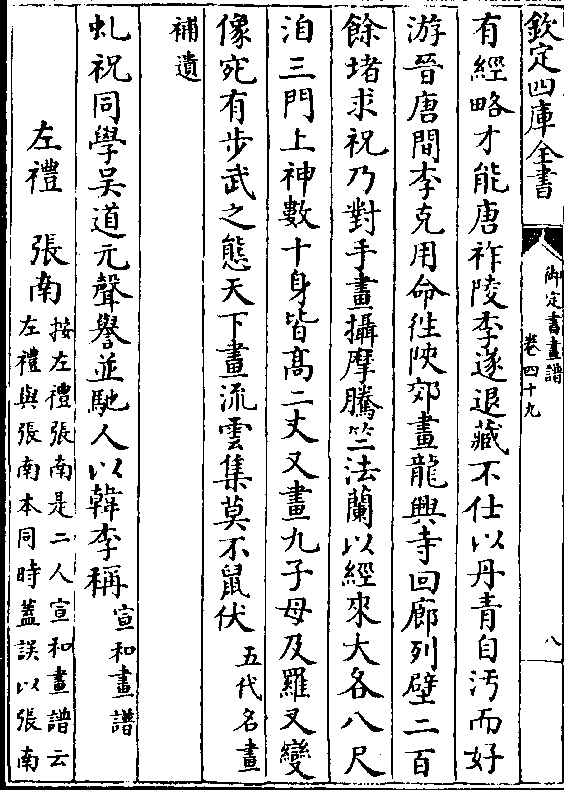 欽定四庫全書
御定書畫譜
卷四十九
八
有經略才能唐祚陵季遂退藏不仕以丹青自汚而好
游晉唐間李克用命徃陜郊畫龍興寺回廊列壁二百
餘堵求祝乃對手畫攝摩騰竺法蘭以經來大各八尺
洎三門上神數十身皆髙二丈又畫九子母及羅叉變
像宛有步武之態天下畫流雲集莫不鼠伏五代名畫
補遺
虬祝同學吳道元聲譽並馳人以韓李稱宣和畫譜
左禮　張南按左禮張南是二人宣和畫譜云
左禮與張南本同時葢誤以張南